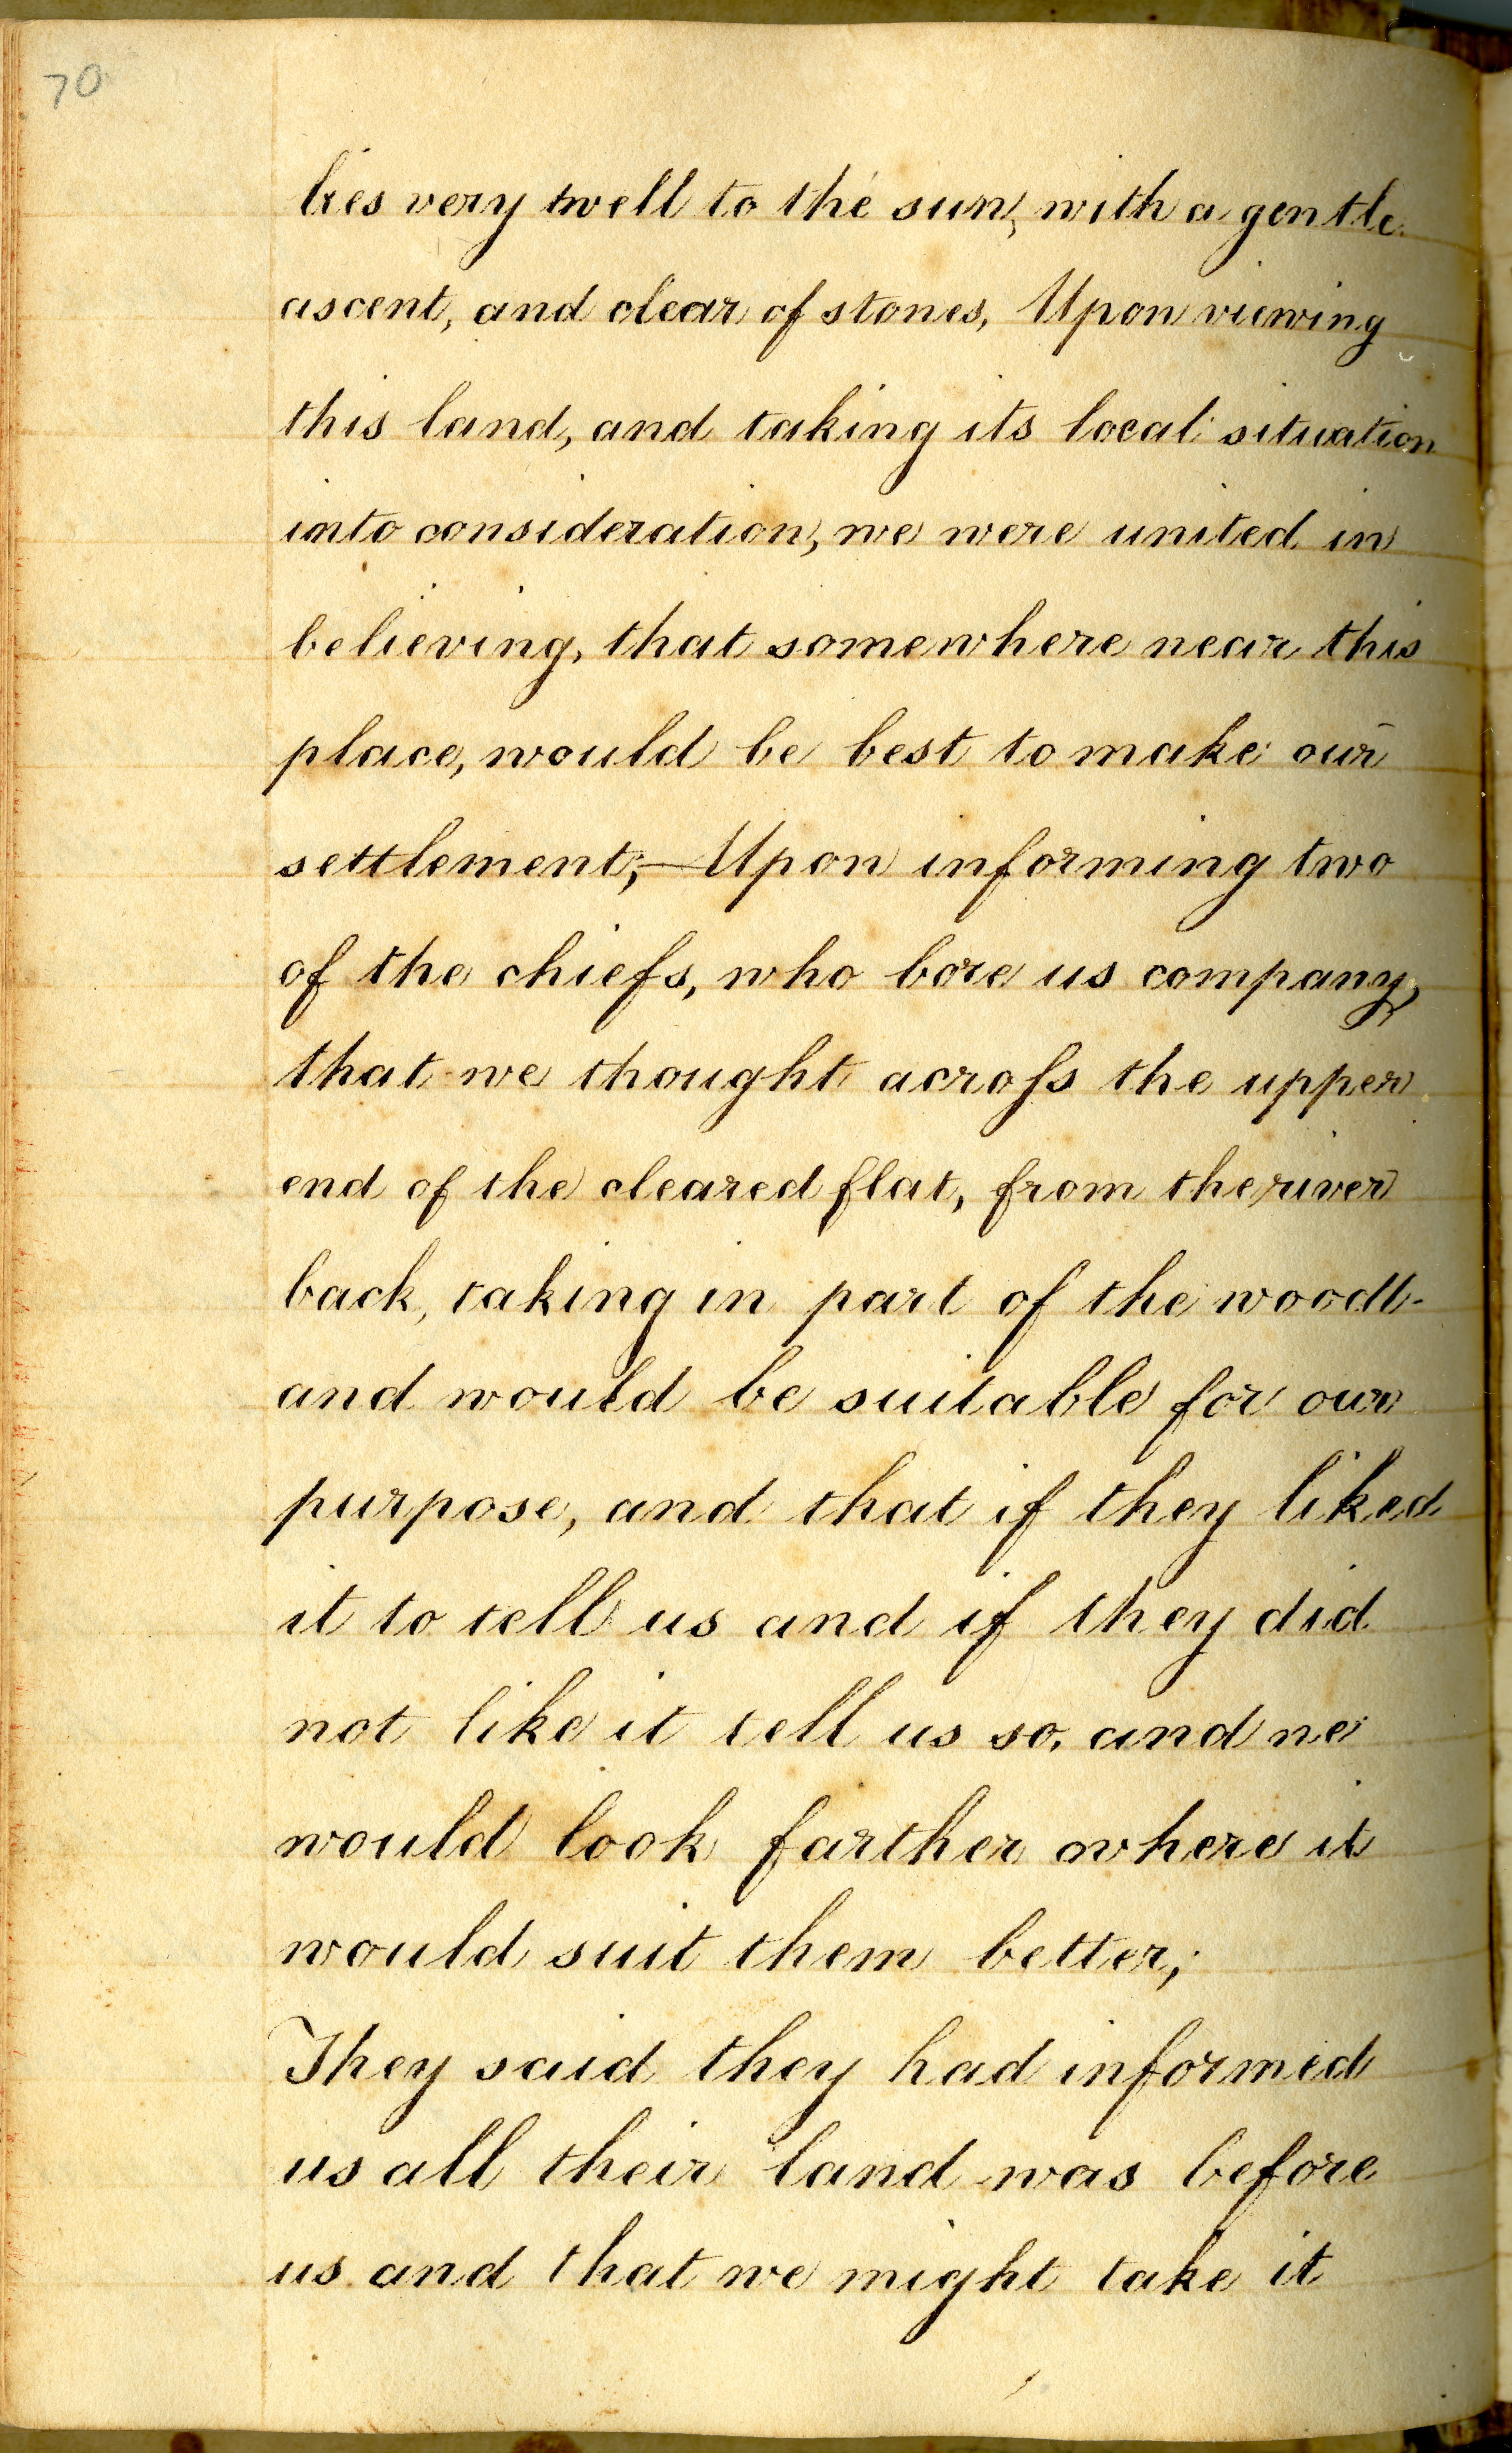 70
lies very well to the sun, with a gentle
ascent, and clear of stones, Upon viewing
this land, and taking its local situation
into consideration, we were united in
believing, that somewhere near this
place, would be best to make our
settlement;—Upon informing two
of the chiefs, who bore us company,
that we thought acroſs the upper
end of the cleared flat, from the river
back, taking in part of the woodl-
and would be suitable for our
purpose, and that if they liked
it to tell us and if they did
not like it tell us so, and we
would look farther where it
would suit them better;
They said they had informed
us all their land was before
us and that we might take it